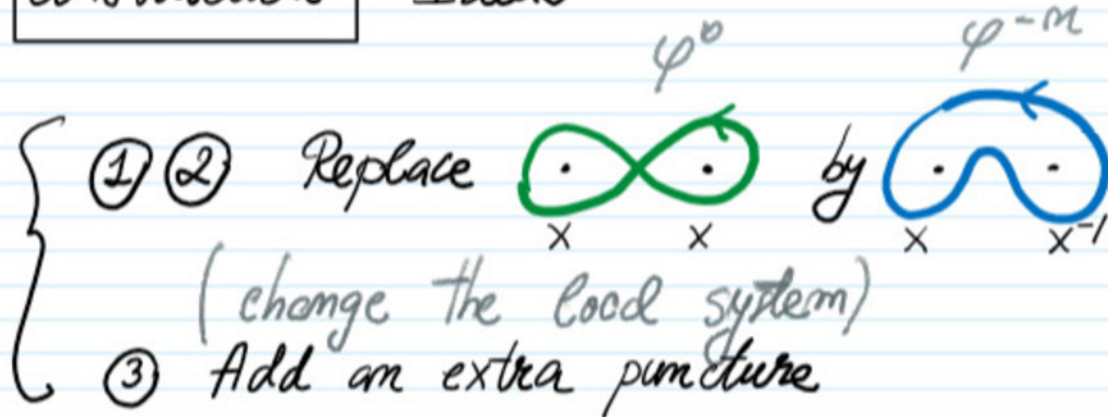 φ⁰ φ⁻ⁿ
① ② Replace by
x x x x⁻¹
(change the local system)
③ Add an extra puncture